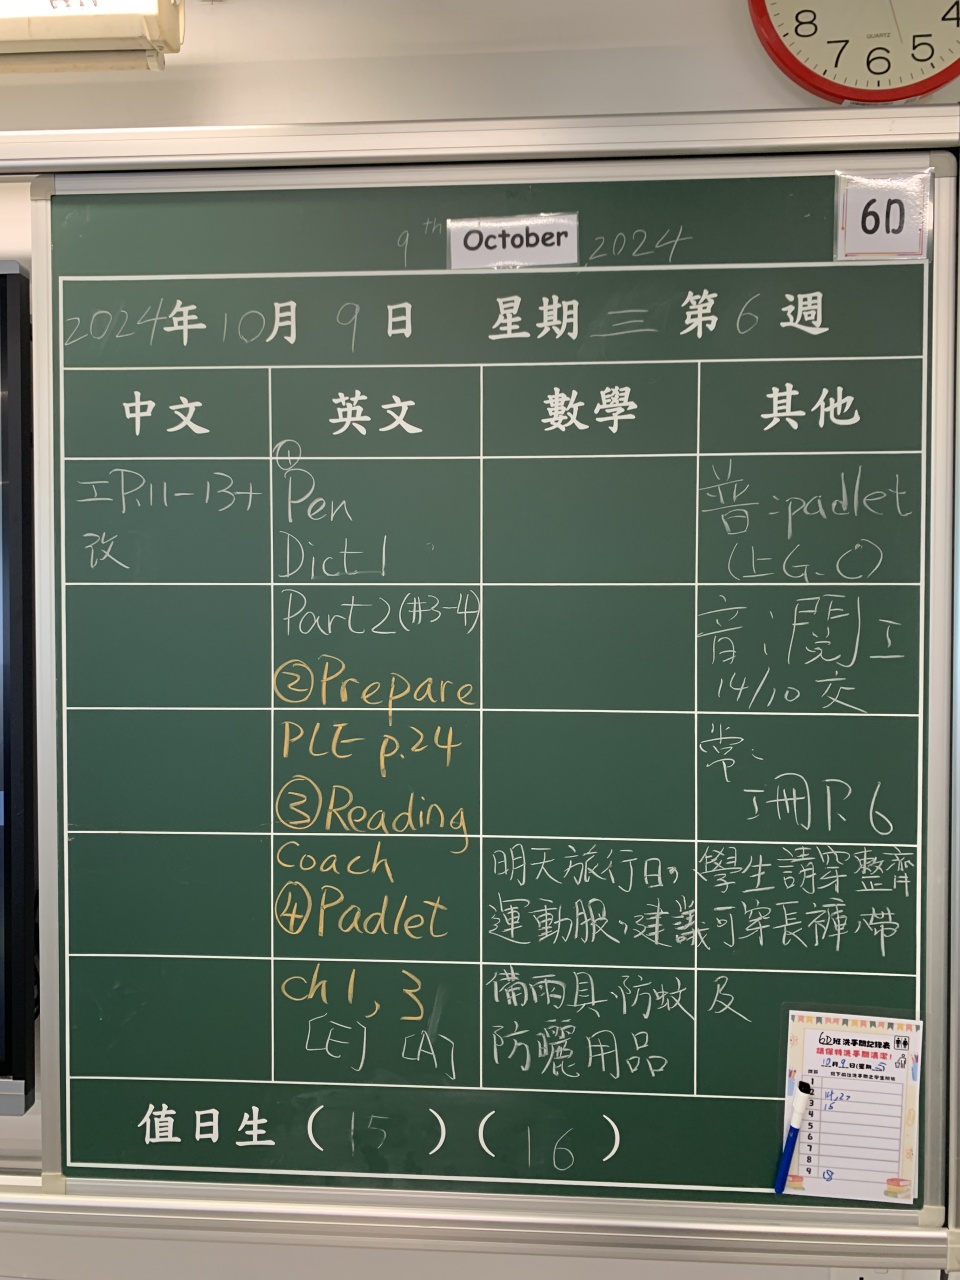 8 7 6 5 4
QUARTZ
6D
9th October 2024
2024年10月9日 星期三 第6週
中文 英文 數學 其他
工P.11-13+
改
①
Pen
Dict 1
Part 2 (#3-4)
②Prepare
PLE p.24
③Reading
Coach
④Padlet
ch 1, 3
[E] [A]
普:padlet
(上G.C)
音:閱工
14/10 交
常:
工冊P.6
明天旅行日,學生請穿整齊
運動服,建議可穿長褲,帶
備雨具、防蚊及
防曬用品
值日生 (15) (16)
6D班洗手間記錄表
請保持洗手間清潔!
10月9日(星期三)
1
2
3 15
4
5
6
7
8
9